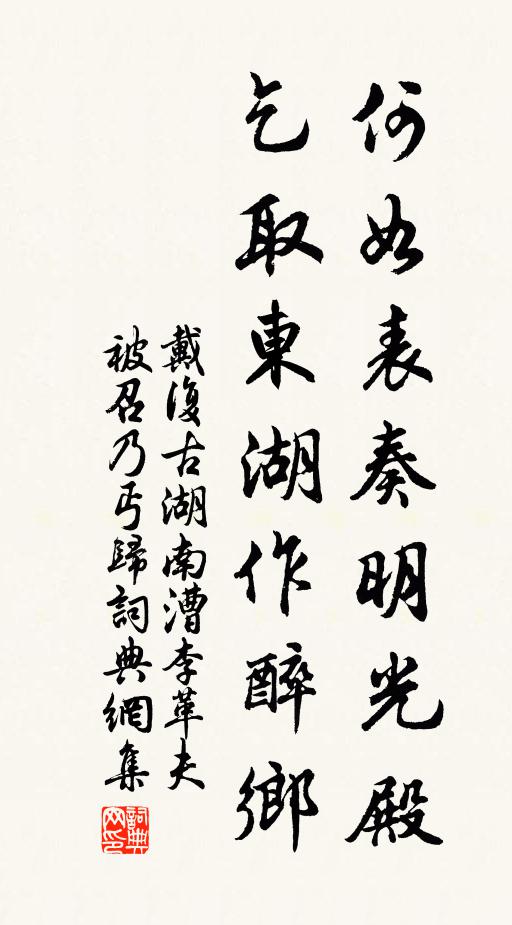 何如表奏明光殿
乞取東湖作醉鄉
戴復古湖南漕李革夫
被召乃丐歸詞典網集
詞典网印